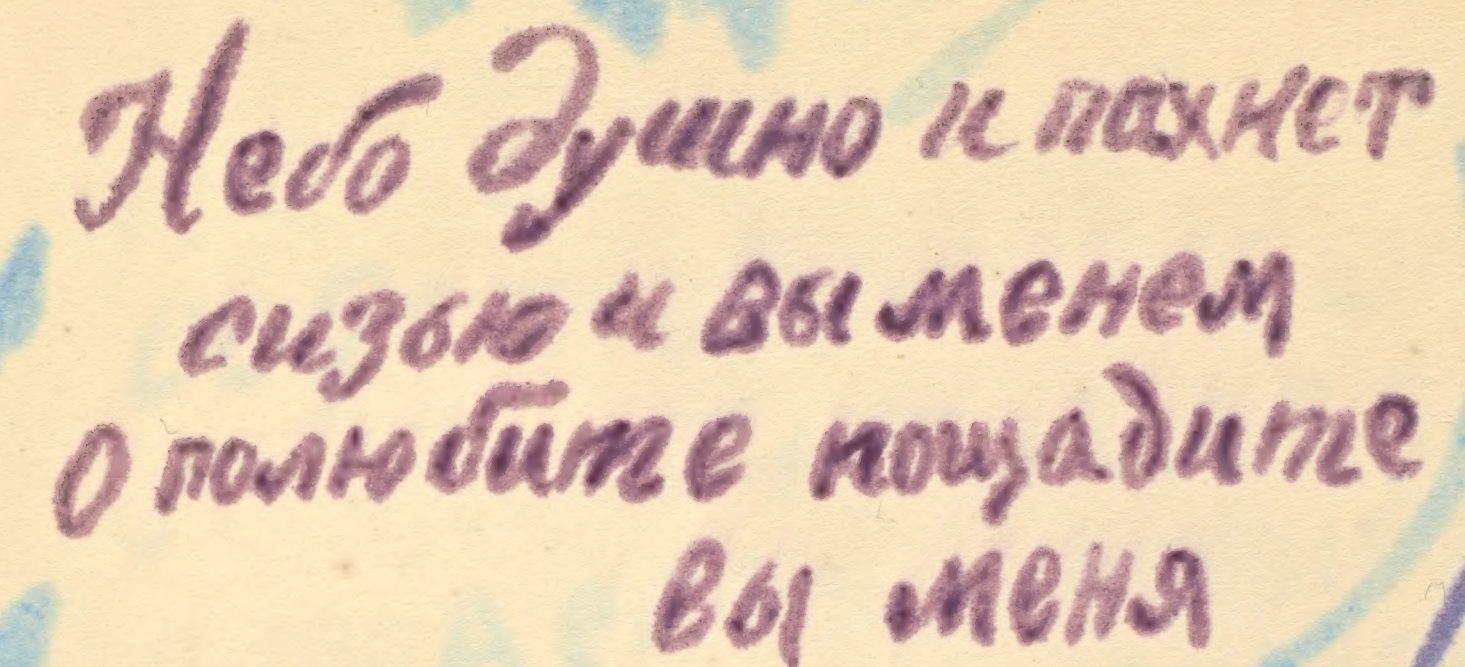 Небо душно и пахнет
сизью и выменем
О полюбите пощадите
вы меня